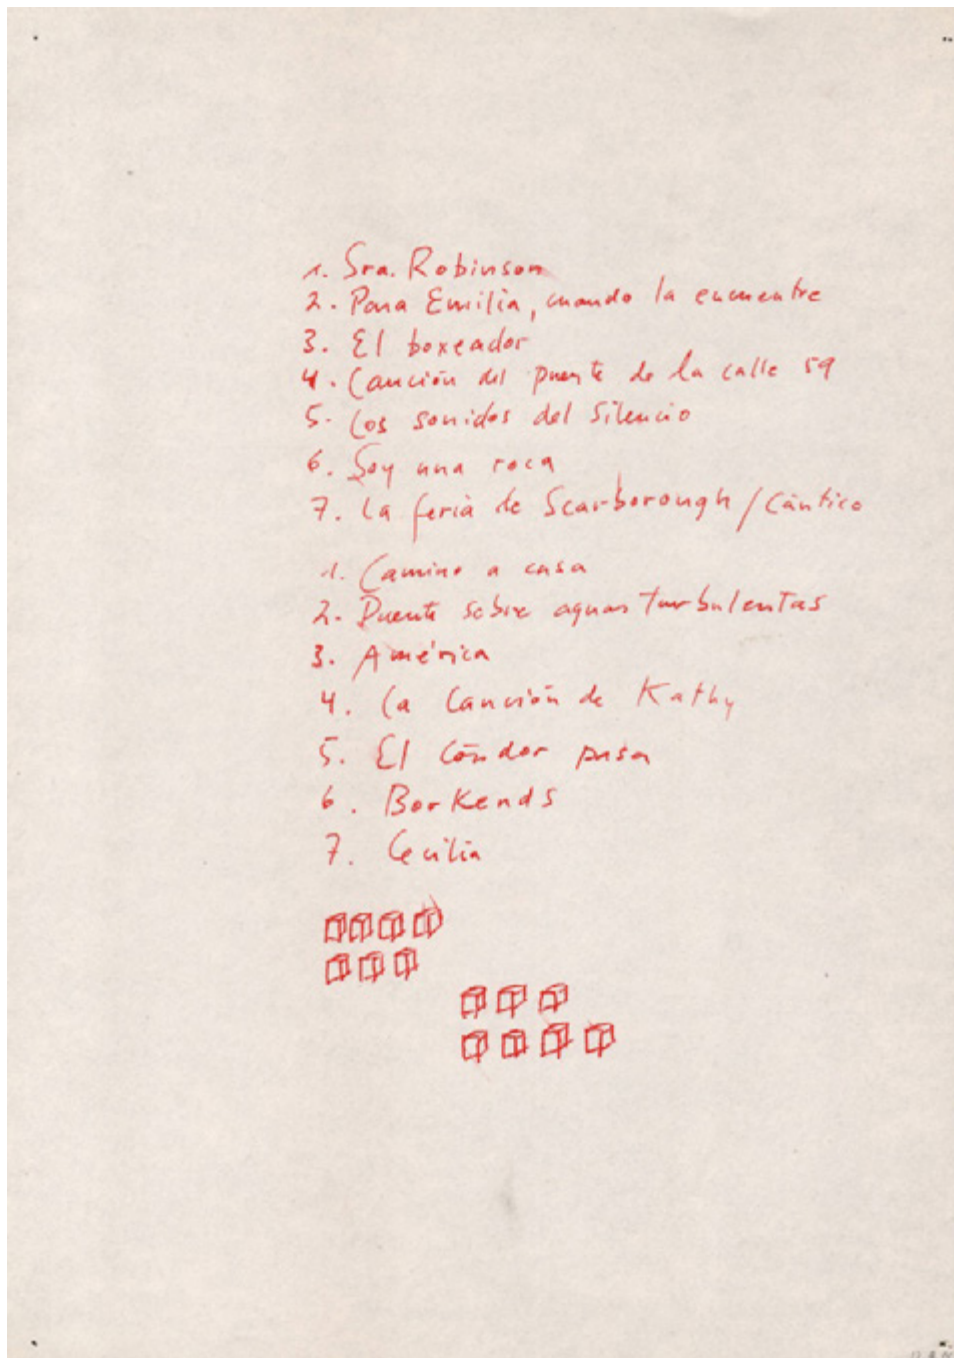 1. Sra. Robinson
2. Para Emilia, cuando la encuentre
3. El boxeador
4. Canción del puente de la calle 59
5. Los sonidos del silencio
6. Soy una roca
7. La feria de Scarborough/Cántico
1. Camino a casa
2. Puente sobre aguas turbulentas
3. América
4. La Canción de Kathy
5. El Cóndor pasa
6. Borkends
7. Cecilia